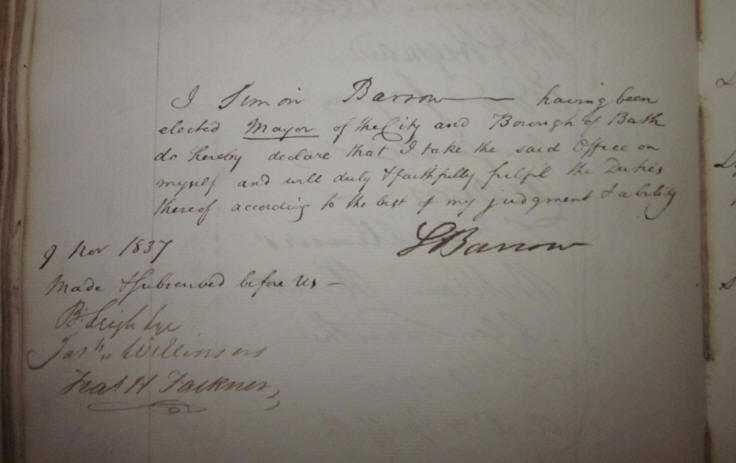 I Simon Barrow having been
elected Mayor of the City and Borough of Bath
do hereby declare that I take the said Office on
myself and will duly & faithfully fulfil the Duties
thereof according to the best of my judgment & ability
S Barrow
9 Nov 1837
Made & Subscribed before us —
B. Leigh Lye
Fras H Falkner